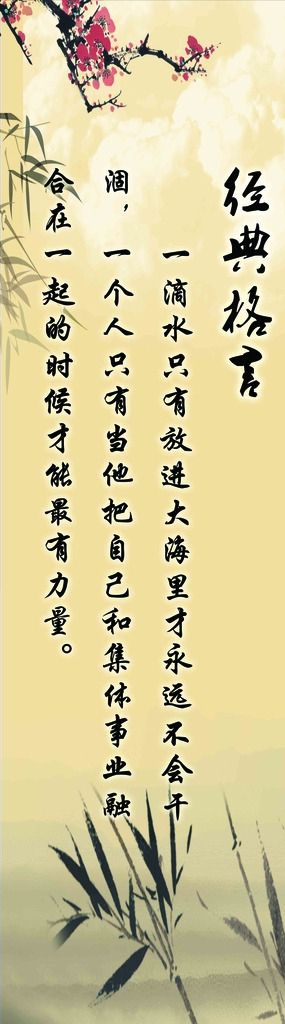 经典格言
一滴水只有放进大海里才永远不会干
涸，一个人只有当他把自己和集体事业融
合在一起的时候才能最有力量。